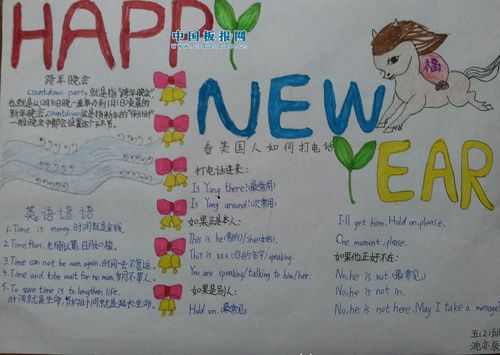 HAPPY
中国板报网
NEW
YEAR
福
跨年晚会
countdown party 就是指"跨年晚会"
也就是从12月31日晚一直举办到1月1日凌晨的
新年晚会。countdown这是指新年的"倒计时"
一般晚会中都会设置这个环节。
英语谚语
1. Time is money. 时间就是金钱。
2. Time flies. 光阴似箭,日月如梭。
3. Time can not be won again. 时间一去不复返。
4. Time and tide wait for no man. 岁月不等人。
5. To save time is to lengthen life.
时间就是生命,节约时间就是延长生命。
看美国人如何打电话
打电话进来:
Is Yang there? (最常用)
Is Yang around? (次常用)
如果正是本人:
This is he (男的) / she (女的).
This is xxx (你的名字) speaking.
You are speaking/talking to him/her.
如果是别人:
Hold on. (最常见)
I'll get him. Hold on, please.
One moment, please.
如果他正好不在:
No, he is out. (最常见)
No, he is not in.
No, he is not here. May I take a message?
五(2)班
沈亦辰